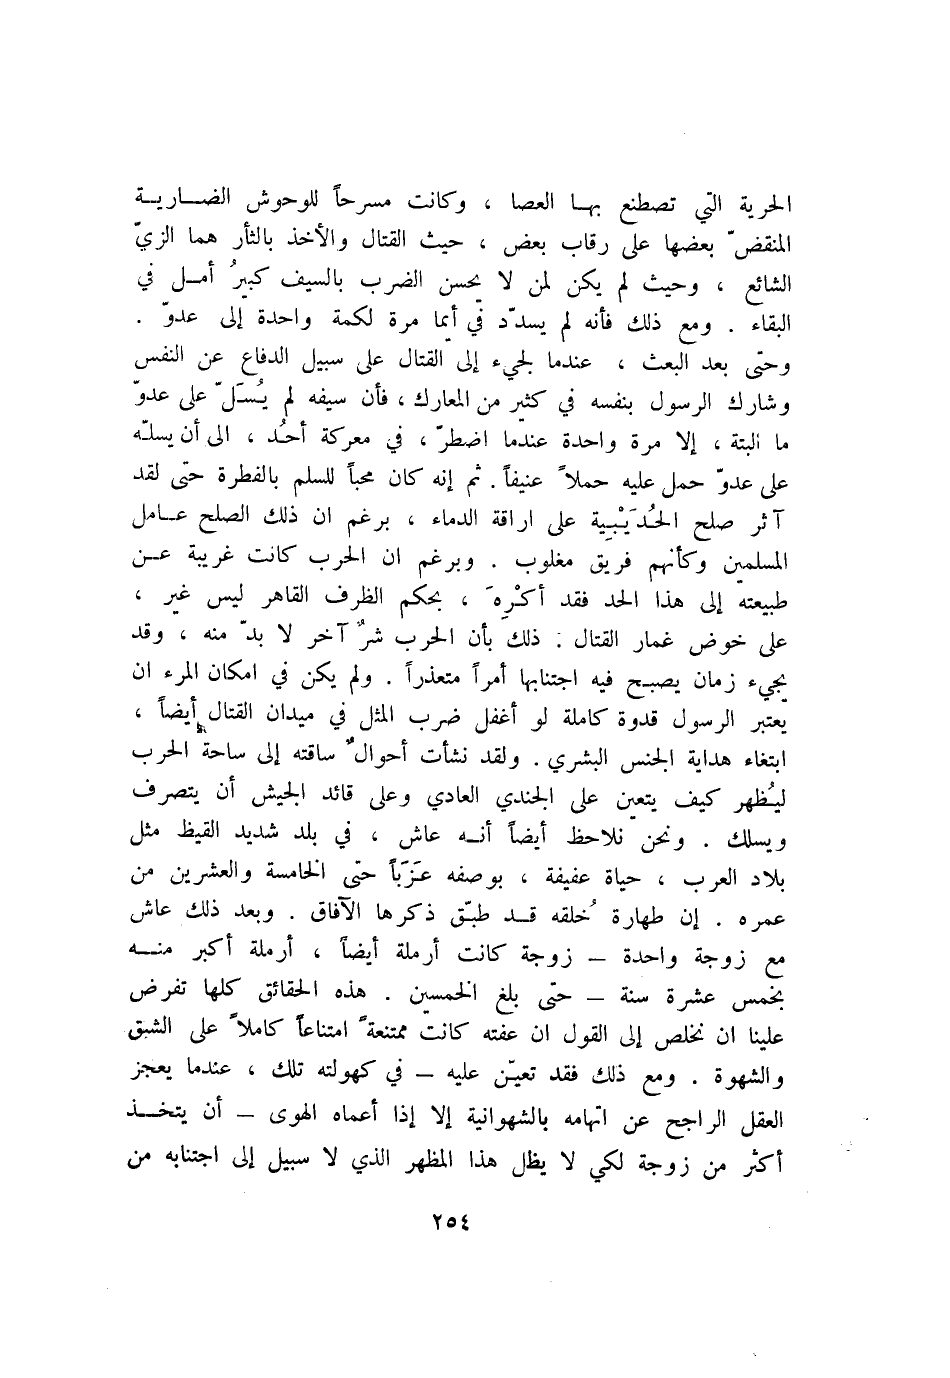 الحرية التي تصطنع بهـا العصا ، وكانت مسرحاً للوحوش الضـاريـة
المنقضّ بعضها على رقاب بعض ، حيث القتال والأخذ بالثأر هما الزيّ
الشائع ، وحيث لم يكن لمن لا يحسن الضرب بالسيف كبيرُ أمـل في
البقاء . ومع ذلك فأنه لم يسدّد في أيما مرة لكمة واحدة إلى عدوّ .
وحتّى بعد البعث ، عندما لجيء إلى القتال على سبيل الدفاع عن النفس
وشارك الرسول بنفسه في كثير من المعارك ، فأن سيفه لم يُسَلّ على عدوّ
ما البتة ، إلا مرة واحدة عندما اضطرّ ، في معركة أحُد ، الى أن يسلّه
على عدوّ حمل عليه حملاً عنيفاً . ثم إنه كان محباً للسلم بالفطرة حتّى لقد
آثر صلح الحُدَيْبِية على اراقة الدماء ، برغم ان ذلك الصلح عـامل
المسلمين وكأنهم فريق مغلوب . وبرغم ان الحرب كانت غريبة عـن
طبيعته إلى هذا الحد فقد أكْرِهَ ، بحكم الظرف القاهر ليس غير ،
على خوض غمار القتال : ذلك بأن الحرب شرٌ آخر لا بدّ منه ، وقد
يجيء زمان يصبح فيه اجتنابها أمراً متعذراً . ولم يكن في امكان المرء ان
يعتبر الرسول قدوة كاملة لو أغفل ضرب المثل في ميدان القتال أيضاً ،
ابتغاء هداية الجنس البشري . ولقد نشأت أحوالٌ ساقته إلى ساحة الحرب
ليُظهر كيف يتعين على الجندي العادي وعلى قائد الجيش أن يتصرف
ويسلك . ونحن نلاحظ أيضاً أنـه عاش ، في بلد شديد القيظ مثل
بلاد العرب ، حياة عفيفة ، بوصفه عَزَباً حتّى الخامسة والعشرين من
عمره . إن طهارة خُلقه قـد طبّق ذكرها الآفاق . وبعد ذلك عاش
مع زوجة واحدة – زوجة كانت أرملة أيضاً ، أرملة أكبر منـه
بخمس عشرة سنة – حتّى بلغ الخمسين . هذه الحقائق كلها تفرض
علينا ان نخلص إلى القول ان عفته كانت ممتنعةً امتناعاً كاملاً على الشبق
والشهوة . ومع ذلك فقد تعيّن عليه – في كهولته تلك ، عندما يعجز
العقل الراجح عن اتهامه بالشهوانية إلا إذا أعماه الهوى – أن يتخـذ
أكثر من زوجة لكي لا يظل هذا المظهر الذي لا سبيل إلى اجتنابه من
٢٥٤